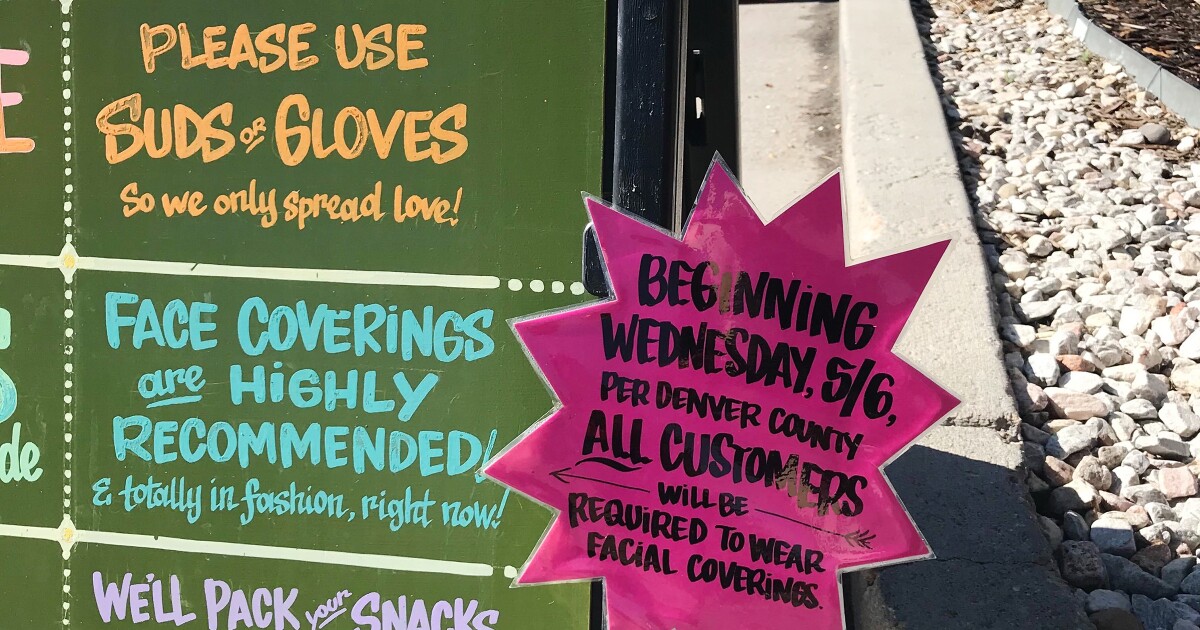 PLEASE USE
SUDS OR GLOVES
So we only spread love!
FACE COVERiNGS
are HiGHLY
RECOMMENDED!
& totally in fashion, right now!
WE'LL PACK your SNACKS
E
S
de
BEGINNiNG
WEDNESDAY, 5/6,
PER DENVER COUNTY
ALL CUSTOMERS
WiLL BE
REQUIRED TO WEAR
FACIAL COVERiNGS.